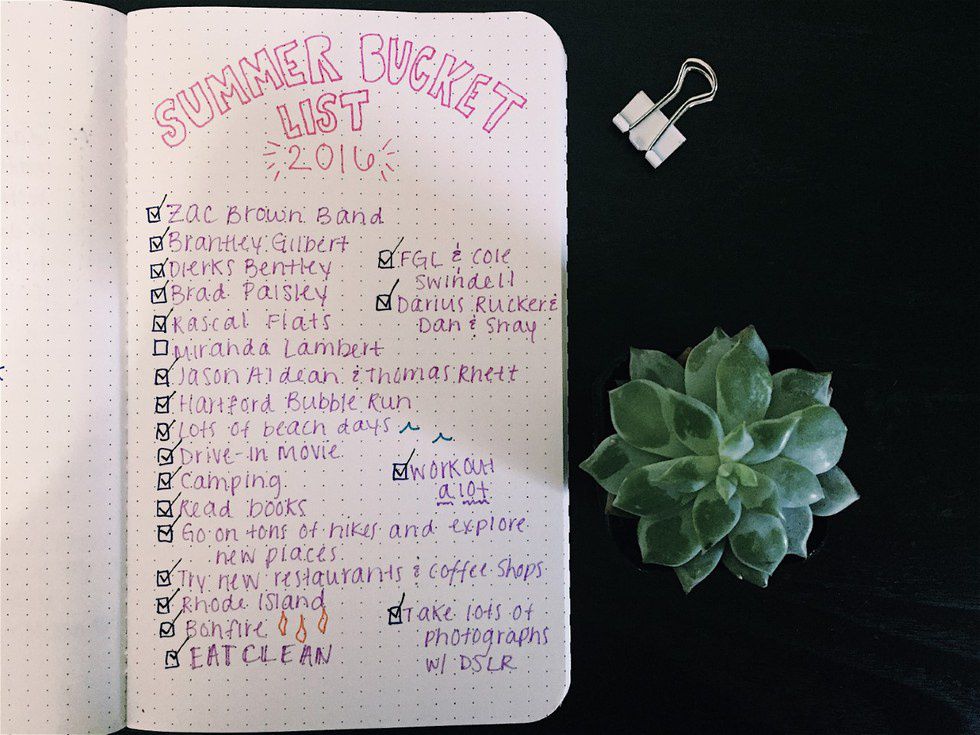 SUMMER BUCKET
LIST
2016
Zac Brown Band
Brantley Gilbert
Dierks Bentley
Brad Paisley
Rascal Flats
Miranda Lambert
Jason Aldean & Thomas Rhett
Hartford Bubble Run
Lots of beach days
Drive-In Movie
Camping
Read books
Go on tons of hikes and explore
new places
Try new restaurants & coffee shops
Rhode Island
Bonfire
EAT CLEAN
FGL & Cole
Swindell
Darius Rucker &
Dan & Shay
WORKOUT
a lot
Take lots of
photographs
w/ DSLR